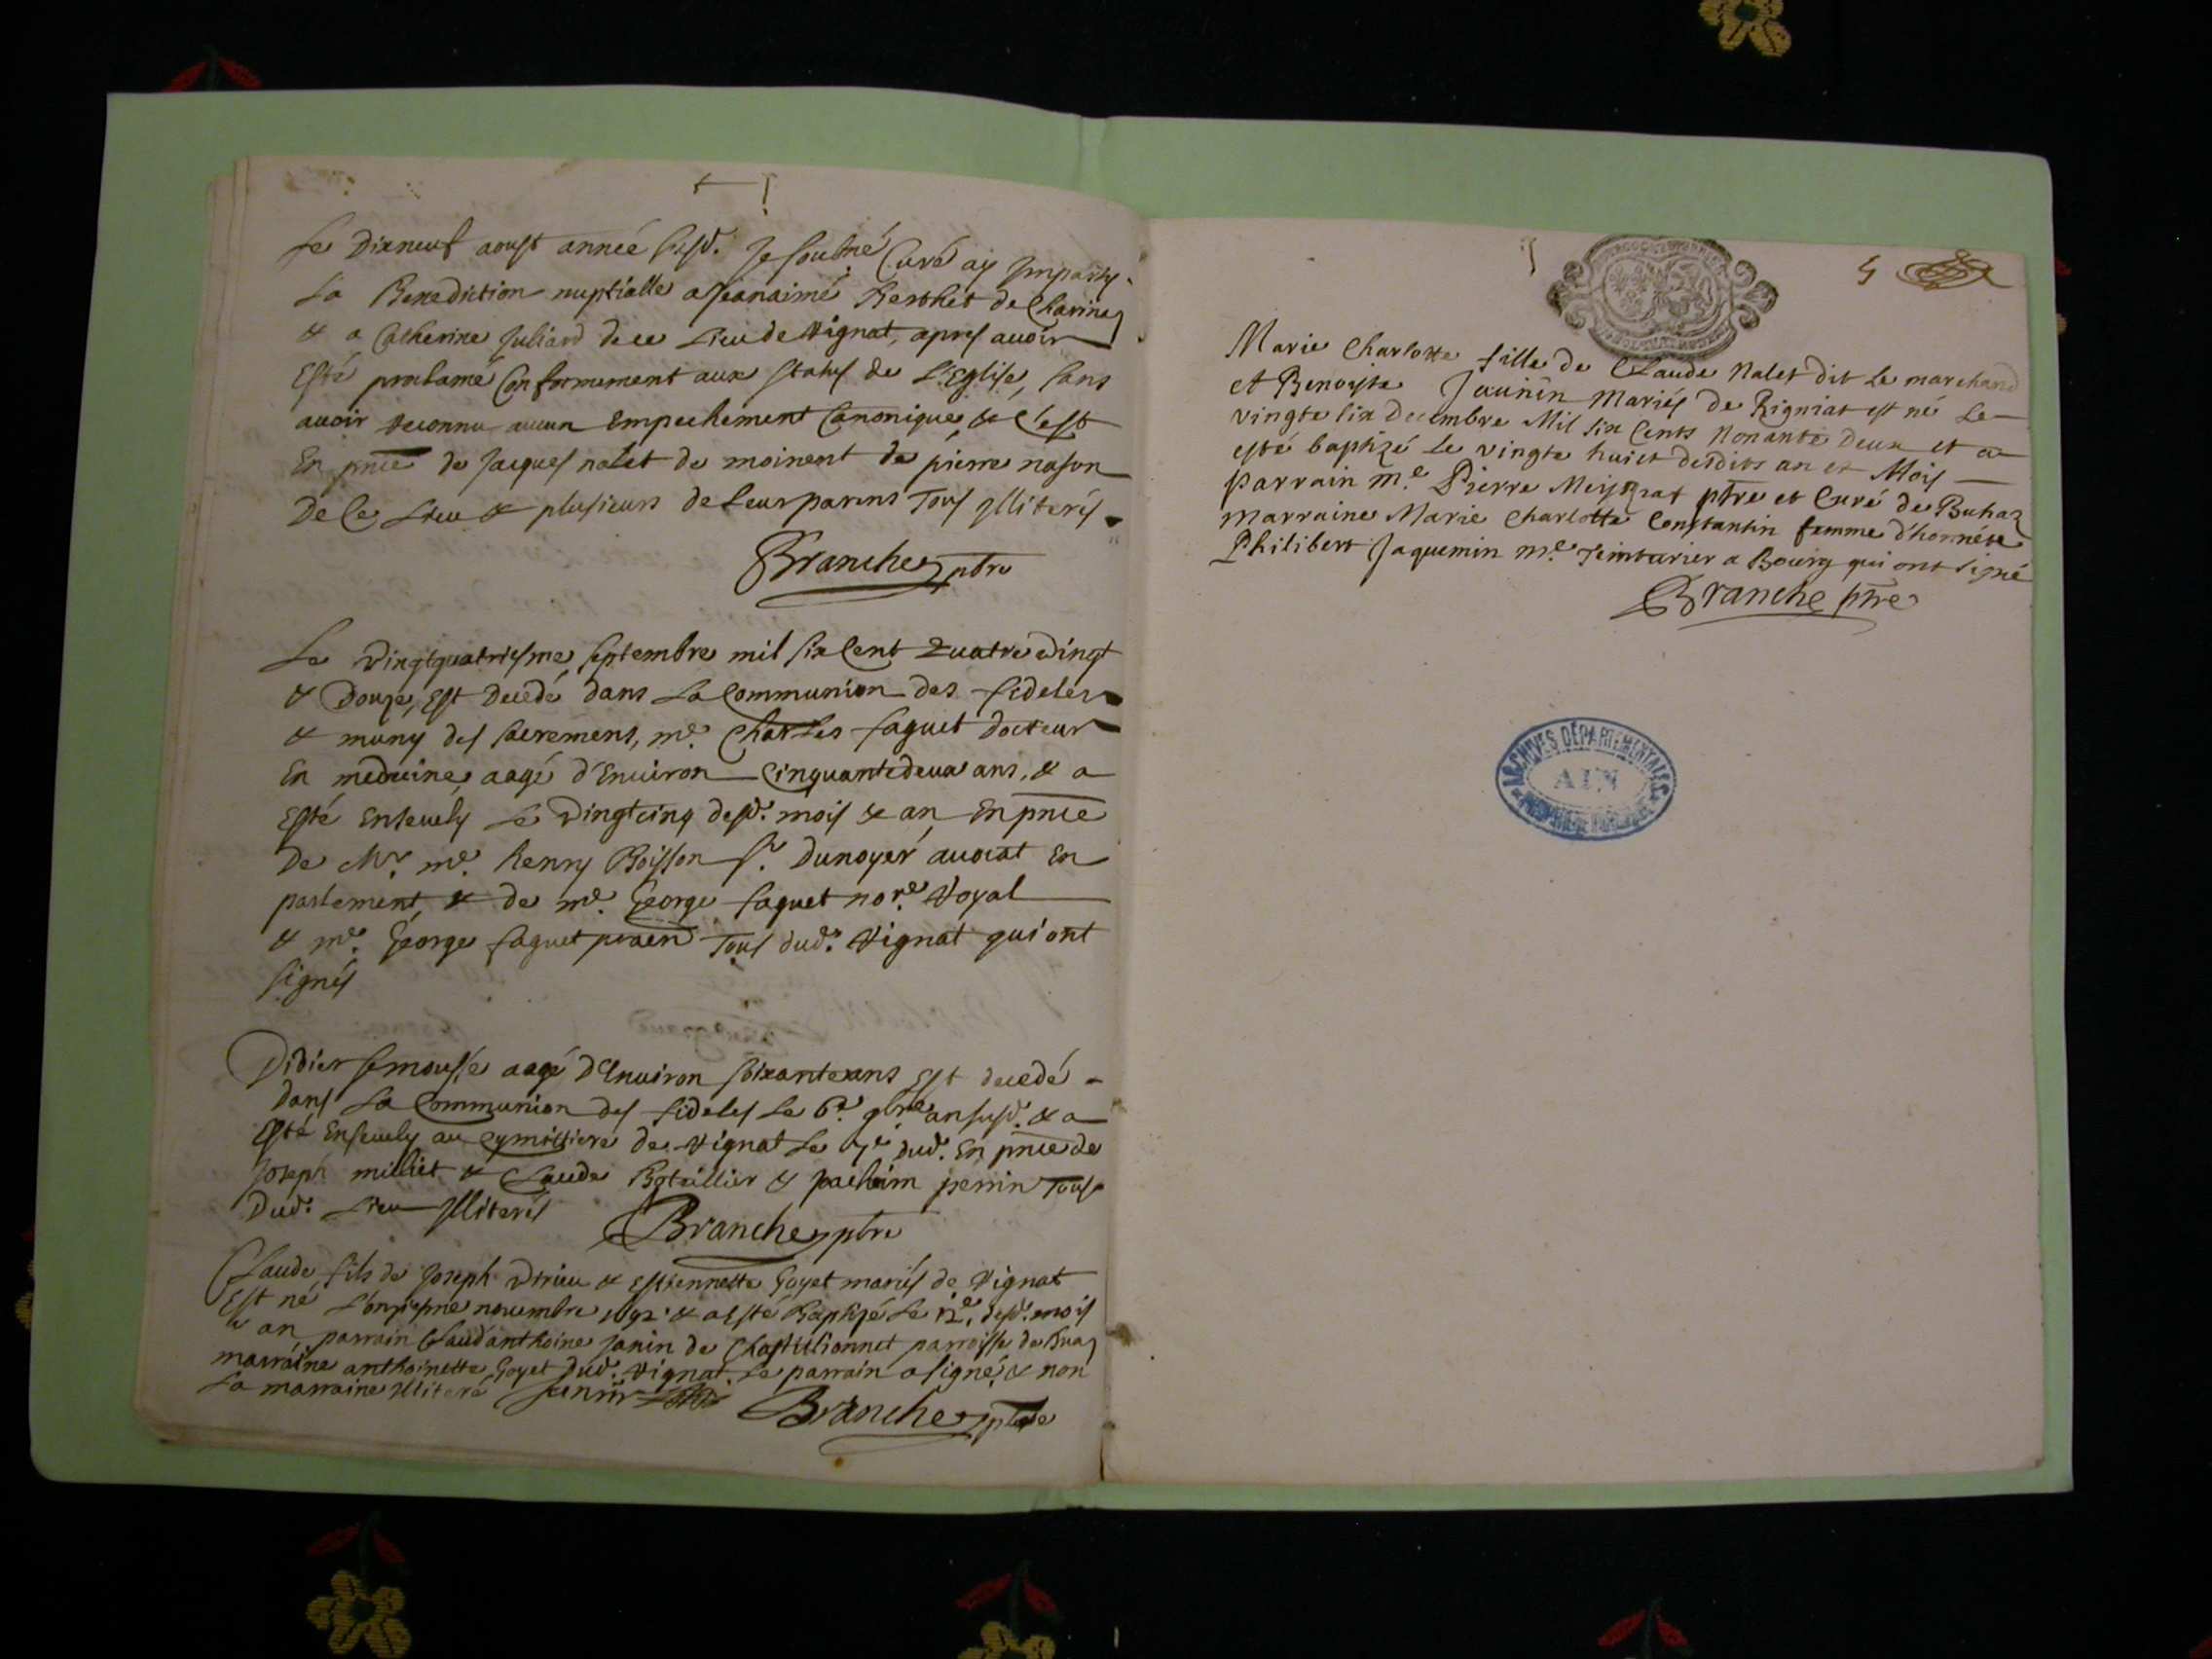 Le Dixneuf aoust année susd. Je soubné Curé ay Imparty
La Benediction nuptialle a Jeanaimé Berthet de Charinaz
& a Catherine Juliard de ce Lieu de Rignat, apres avoir
Esté proclamé Conformement aux statuts de L'Eglise, sans
avoir reconnu aucun Empechement Canonique & C'est
En pnce de Jacques nalet de moinent de pierre nason
De Ce Lieu & plusieurs de Leurs parens Tous Illiterés
Branche ptre
Le Vingtquatriesme septembre mil six Cent Quatrevingt
& Douze, Est Decedé dans La Communion des fideles
& muny des sacremens, me. Charles faguet docteur
En medecine, aagé d'Environ Cinquantedeux ans, & a
Esté Ensevely Le Vingtcinq desd. mois & an, En pnce
De Mr. me. henry Boisson sr. Dunoyer avocat En
parlement, & de me. George faguet nore. Royal
& me. George faguet Tous dud. Rignat qui ont
signés
Didier aagé D'Environ soixante ans Est decedé
Dans La Communion des fideles Le 6e. 9bre an susd. & a
Esté Ensevely au Cymittiere de Rignat Le 7e dud. En pnce de
Joseph milliet & Claude Bataillier & Joachim perrin Tous
Dud. Lieu Illiterés
Branche ptre
Claude, fils de Joseph Vtrieu & Estiennette Goyet mariés de Rignat
Est né L'onziesme novembre 1692 & a Esté Baptizé Le 12e. desd. mois
& an, parrain Claud'anthoine Janin de Chastillionnet parroisse de
marraine anthoinette Goyet Dud. Rignat. Le parrain a signé, & non
La marraine Illiteré Janin
Branche ptre
5
Marie Charlotte fille de Claude Nalet dit Le marchand
et Benoiste Jaunin Mariés de Rigniat est né Le
vingte six decembre Mil six Cents Nonante Deux et a
esté baptizé Le vingte huict desdits an et Mois
parrain me. Pierre Meysgrat ptre et Curé de Buhaz
Marraine Marie Charlotte Constantin femme d'honnéste
Philibert Jaquemin me. Teinturier a Bourg qui ont signé
Branche ptre
ARCHIVES DÉPARTEMENTALES
AIN